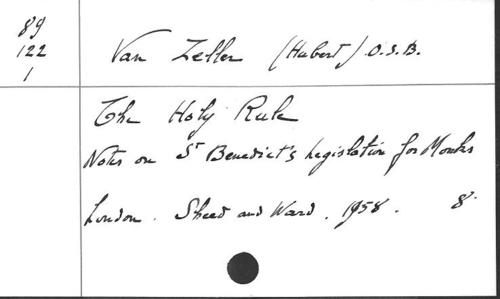 89
122
1
Van Zeller (Hubert) O.S.B.
The Holy Rule
Notes on St Benedict's Legislation for Monks
London. Sheed and Ward. 1958. 8º